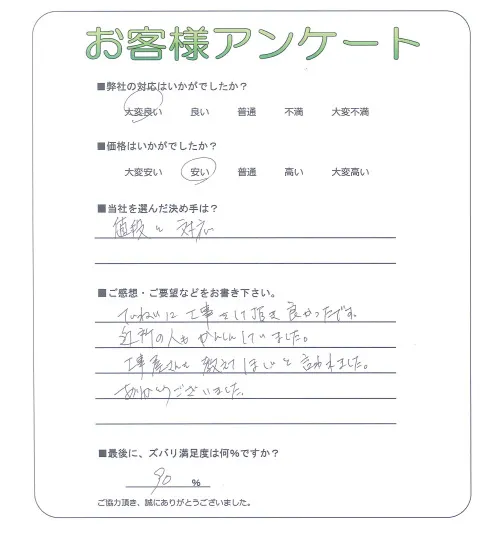 お客様アンケート
■弊社の対応はいかがでしたか？
大変良い 良い 普通 不満 大変不満
■価格はいかがでしたか？
大変安い 安い 普通 高い 大変高い
■当社を選んだ決め手は？
値段と対応
■ご感想・ご要望などをお書き下さい。
ていねいに工事をして頂き良かったです。
近所の人もかんしんしていました。
工事屋さんを教えてほしいと言われました。
ありがとうございました。
■最後に、ズバリ満足度は何%ですか？
90 %
ご協力頂き、誠にありがとうございました。